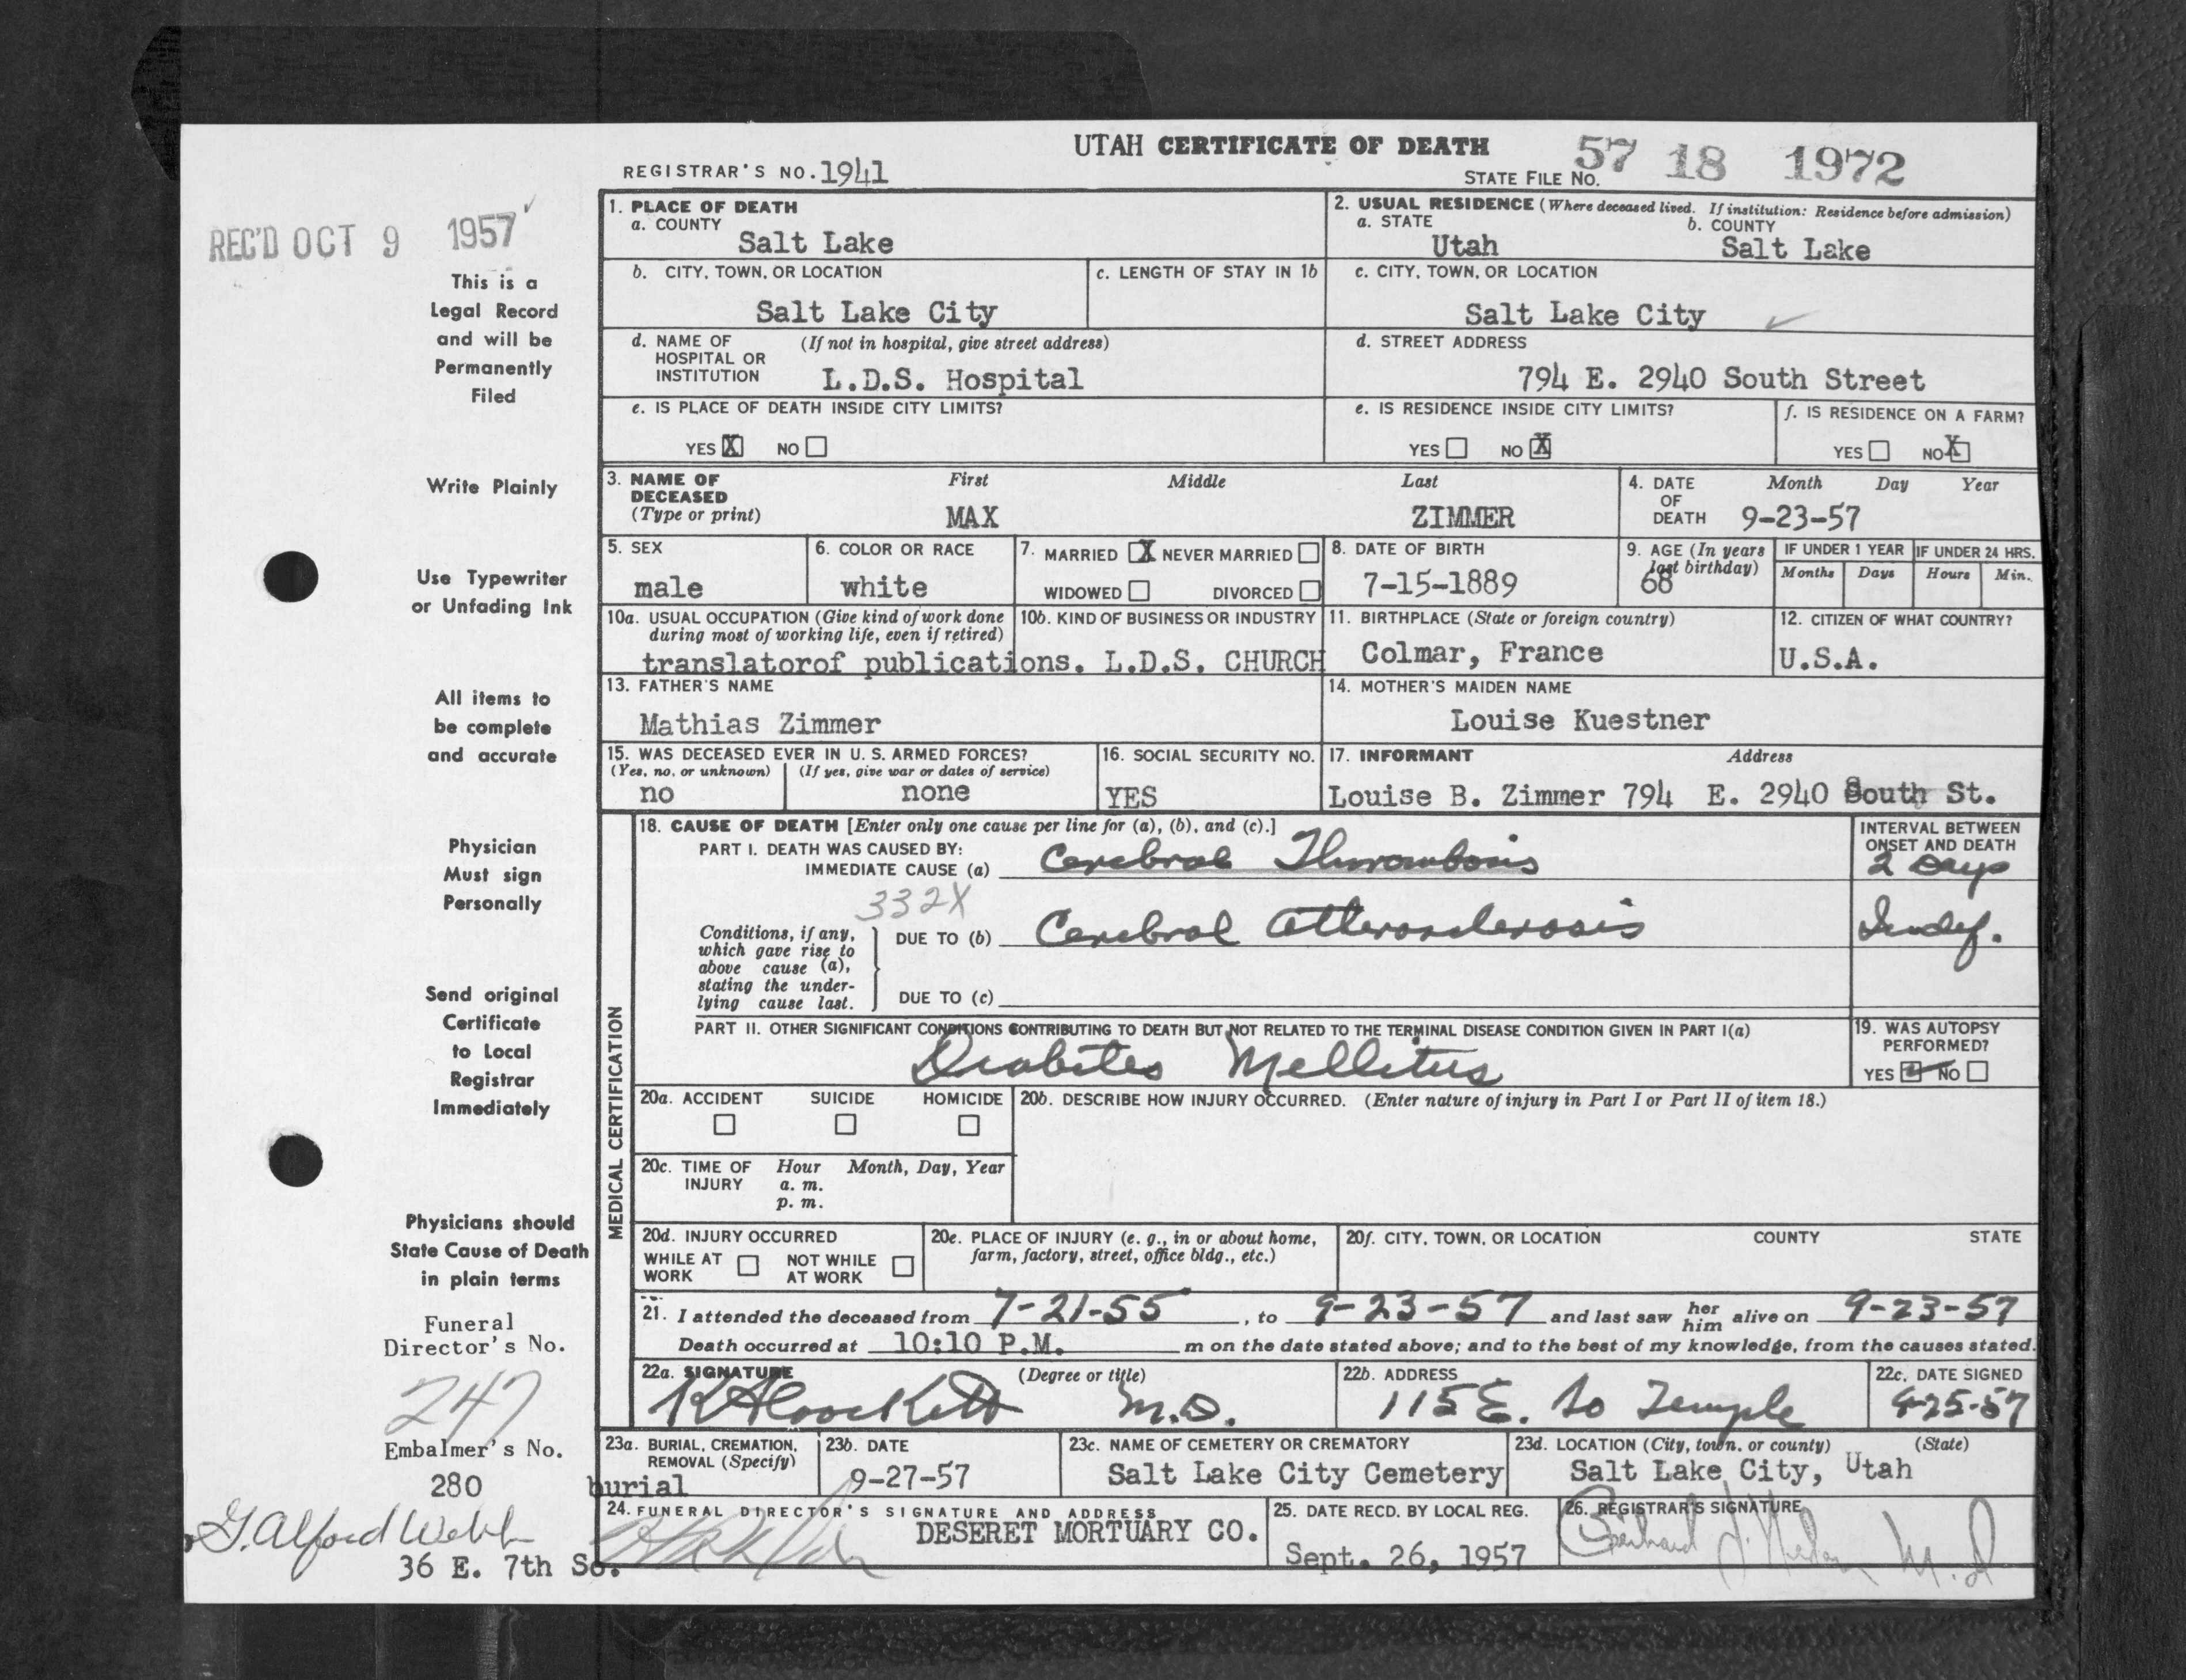 UTAH CERTIFICATE OF DEATH
REGISTRAR'S NO. 1941
STATE FILE NO. 57 18 1972
REC'D OCT 9 1957
This is a
Legal Record
and will be
Permanently
Filed
Write Plainly
Use Typewriter
or Unfading Ink
All items to
be complete
and accurate
Physician
Must sign
Personally
Send original
Certificate
to Local
Registrar
Immediately
Physicians should
State Cause of Death
in plain terms
Funeral
Director's No.
247
Embalmer's No.
280
G. Alford Webb
36 E. 7th So.
1. PLACE OF DEATH
a. COUNTY
Salt Lake
2. USUAL RESIDENCE (Where deceased lived. If institution: Residence before admission)
a. STATE b. COUNTY
Utah Salt Lake
b. CITY, TOWN, OR LOCATION
Salt Lake City
c. LENGTH OF STAY IN 1b
c. CITY, TOWN, OR LOCATION
Salt Lake City
d. NAME OF (If not in hospital, give street address)
HOSPITAL OR
INSTITUTION L.D.S. Hospital
d. STREET ADDRESS
794 E. 2940 South Street
e. IS PLACE OF DEATH INSIDE CITY LIMITS?
YES X NO
e. IS RESIDENCE INSIDE CITY LIMITS?
YES NO X
f. IS RESIDENCE ON A FARM?
YES NO X
3. NAME OF First Middle Last
DECEASED
(Type or print) MAX ZIMMER
4. DATE Month Day Year
OF
DEATH 9-23-57
5. SEX
male
6. COLOR OR RACE
white
7. MARRIED X NEVER MARRIED
WIDOWED DIVORCED
8. DATE OF BIRTH
7-15-1889
9. AGE (In years
last birthday)
68
IF UNDER 1 YEAR IF UNDER 24 HRS.
Months Days Hours Min.
10a. USUAL OCCUPATION (Give kind of work done
during most of working life, even if retired)
10b. KIND OF BUSINESS OR INDUSTRY
translatorof publications. L.D.S. CHURCH
11. BIRTHPLACE (State or foreign country)
Colmar, France
12. CITIZEN OF WHAT COUNTRY?
U.S.A.
13. FATHER'S NAME
Mathias Zimmer
14. MOTHER'S MAIDEN NAME
Louise Kuestner
15. WAS DECEASED EVER IN U. S. ARMED FORCES?
(Yes, no, or unknown) (If yes, give war or dates of service)
no none
16. SOCIAL SECURITY NO.
YES
17. INFORMANT Address
Louise B. Zimmer 794 E. 2940 South St.
MEDICAL CERTIFICATION
18. CAUSE OF DEATH [Enter only one cause per line for (a), (b), and (c).]
PART I. DEATH WAS CAUSED BY:
IMMEDIATE CAUSE (a) Cerebral Thrombosis
332X
Conditions, if any,
which gave rise to
above cause (a),
stating the under-
lying cause last.
DUE TO (b) Cerebral Atherosclerosis
DUE TO (c)
INTERVAL BETWEEN
ONSET AND DEATH
2 Days
Indef.
PART II. OTHER SIGNIFICANT CONDITIONS CONTRIBUTING TO DEATH BUT NOT RELATED TO THE TERMINAL DISEASE CONDITION GIVEN IN PART I(a)
Diabetes Mellitus
19. WAS AUTOPSY
PERFORMED?
YES NO
20a. ACCIDENT SUICIDE HOMICIDE
20b. DESCRIBE HOW INJURY OCCURRED. (Enter nature of injury in Part I or Part II of item 18.)
20c. TIME OF Hour Month, Day, Year
INJURY a. m.
p. m.
20d. INJURY OCCURRED
WHILE AT NOT WHILE
WORK AT WORK
20e. PLACE OF INJURY (e. g., in or about home,
farm, factory, street, office bldg., etc.)
20f. CITY, TOWN, OR LOCATION COUNTY STATE
21. I attended the deceased from 7-21-55, to 9-23-57 and last saw her him alive on 9-23-57
Death occurred at 10:10 P.M. m on the date stated above; and to the best of my knowledge, from the causes stated.
22a. SIGNATURE (Degree or title)
M.D.
22b. ADDRESS
115 E. So Temple
22c. DATE SIGNED
9-25-57
23a. BURIAL, CREMATION,
REMOVAL (Specify)
burial
23b. DATE
9-27-57
23c. NAME OF CEMETERY OR CREMATORY
Salt Lake City Cemetery
23d. LOCATION (City, town, or county) (State)
Salt Lake City, Utah
24. FUNERAL DIRECTOR'S SIGNATURE AND ADDRESS
DESERET MORTUARY CO.
25. DATE RECD. BY LOCAL REG.
Sept. 26, 1957
26. REGISTRAR'S SIGNATURE
M.D